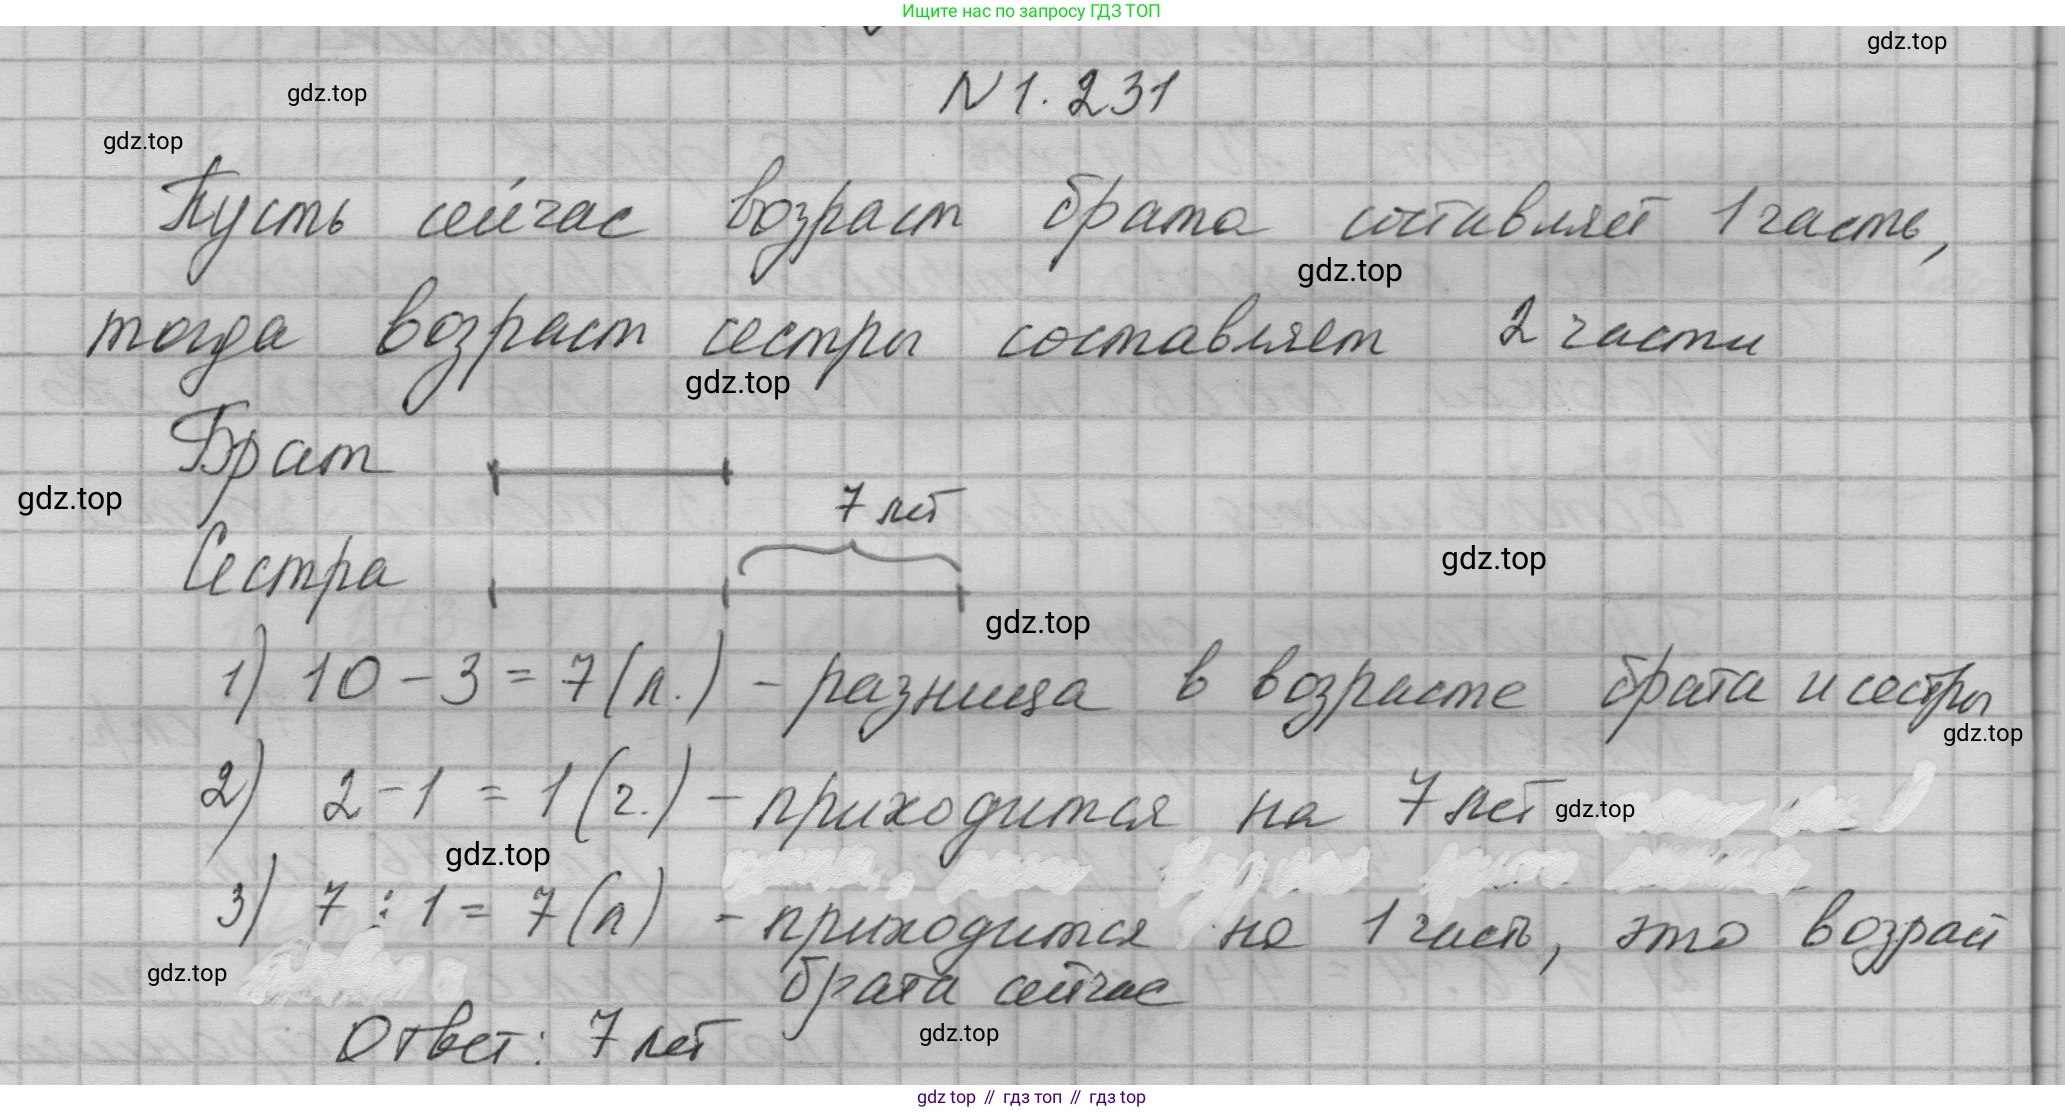 Ищите нас по запросу ГДЗ ТОП
gdz.top
N 1. 231
gdz.top
gdz.top
Пусть сейчас возраст брата составляет 1 часть,
gdz.top
тогда возраст сестры составляет 2 части
gdz.top
Брат
gdz.top
7 лет
Сестра
gdz.top
gdz.top
1) 10 - 3 = 7 (л.) - разница в возрасте брата и сестры
gdz.top
2) 2 - 1 = 1 (ч.) - приходится на 7 лет
gdz.top
gdz.top
3) 7 : 1 = 7 (л) - приходится на 1 часть, это возраст
gdz.top
брата сейчас
Ответ: 7 лет
gdz.top
gdz top // гдз топ // гдз top